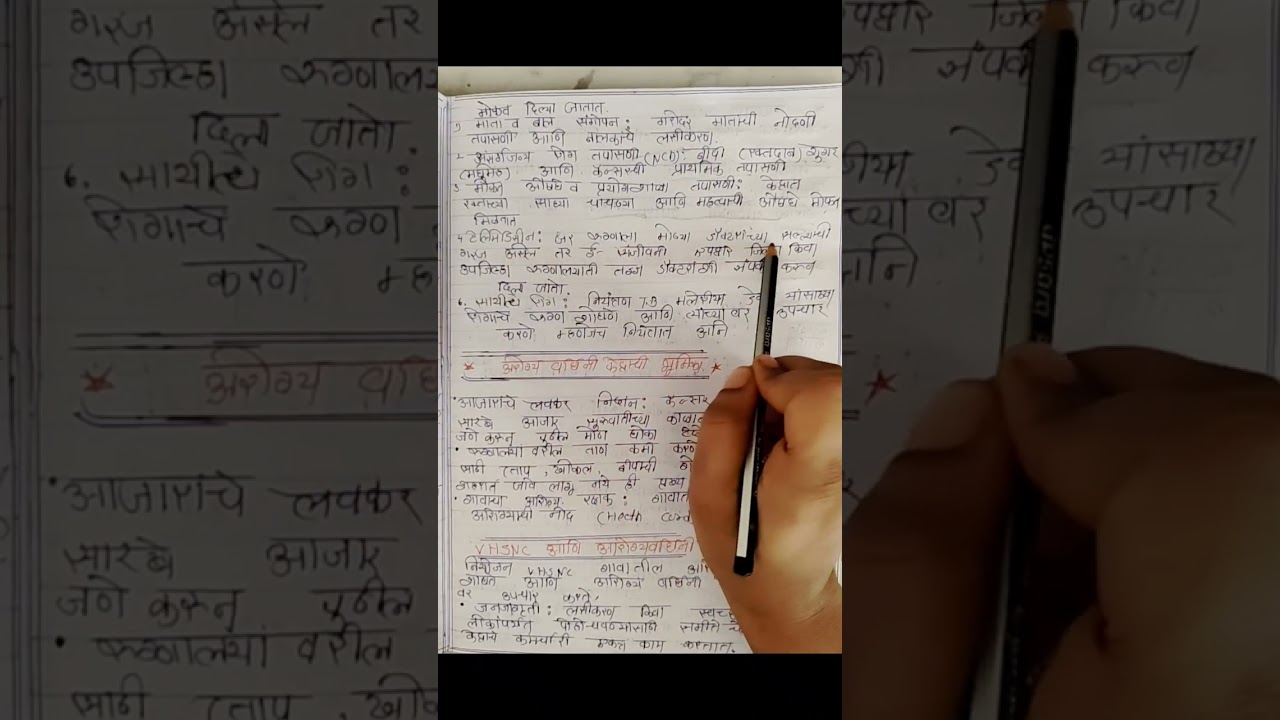 मोफत दिल्या जातात.
1 माता व बाल संगोपन: गरोदर मातांची नोंदणी
तपासणी आणि बालकांचे लसीकरण
2 असंसर्गजन्य रोग तपासणी (NCD): बीपी (रक्तदाब) शुगर
(मधुमेह) आणि कॅन्सरची प्राथमिक तपासणी
3 मोफत औषधे व प्रयोगशाळा तपासणी: केंद्रात
रक्ताच्या साध्या चाचण्या आणि महत्वाची औषधे मोफत
मिळतात
4 टेलिमेडिसीन: जर रुग्णाला मोठ्या डॉक्टरांच्या सल्ल्याची
गरज असेल तर ई- संजीवनी जिल्हा किंवा
उपजिल्हा रुग्णालयाती तज्ज्ञ डॉक्टरांशी संपर्क करून
दिला जातो.
6. साथीचे रोग: नियंत्रण T.B मलेरिया डेंग्यू यांसारख्या
रोगाचे रुग्ण शोधणे आणि त्यांच्या वर उपचार
करणे म्हणजेच नियंतात आनि
* आरोग्य वर्धिनी केंद्राची भूमिका *
• आजारांचे लवकर निदान: कॅन्सर
सारखे आजार सुरुवातीच्या काळात
जणे करून पुढील मोठा धोका
• रुग्णालया वरील ताण कमी करणे
साठी (ताप, खोकला, बीपाची
जावे लागू नये ही
• गावाचा आरोग्य रक्षक: गावात
आरोग्याची नोंद (Health Card
VHSNC आणि आरोग्यवर्धिनी
नियोजन VHSNC गावातील
आणि आरोग्य वर्धिनी
वर उपचार करते,
• जनजागृती: लसीकरण किंवा
लोकांपर्यंत
केंद्राचे कर्मचारी एकत्र काम करतात.